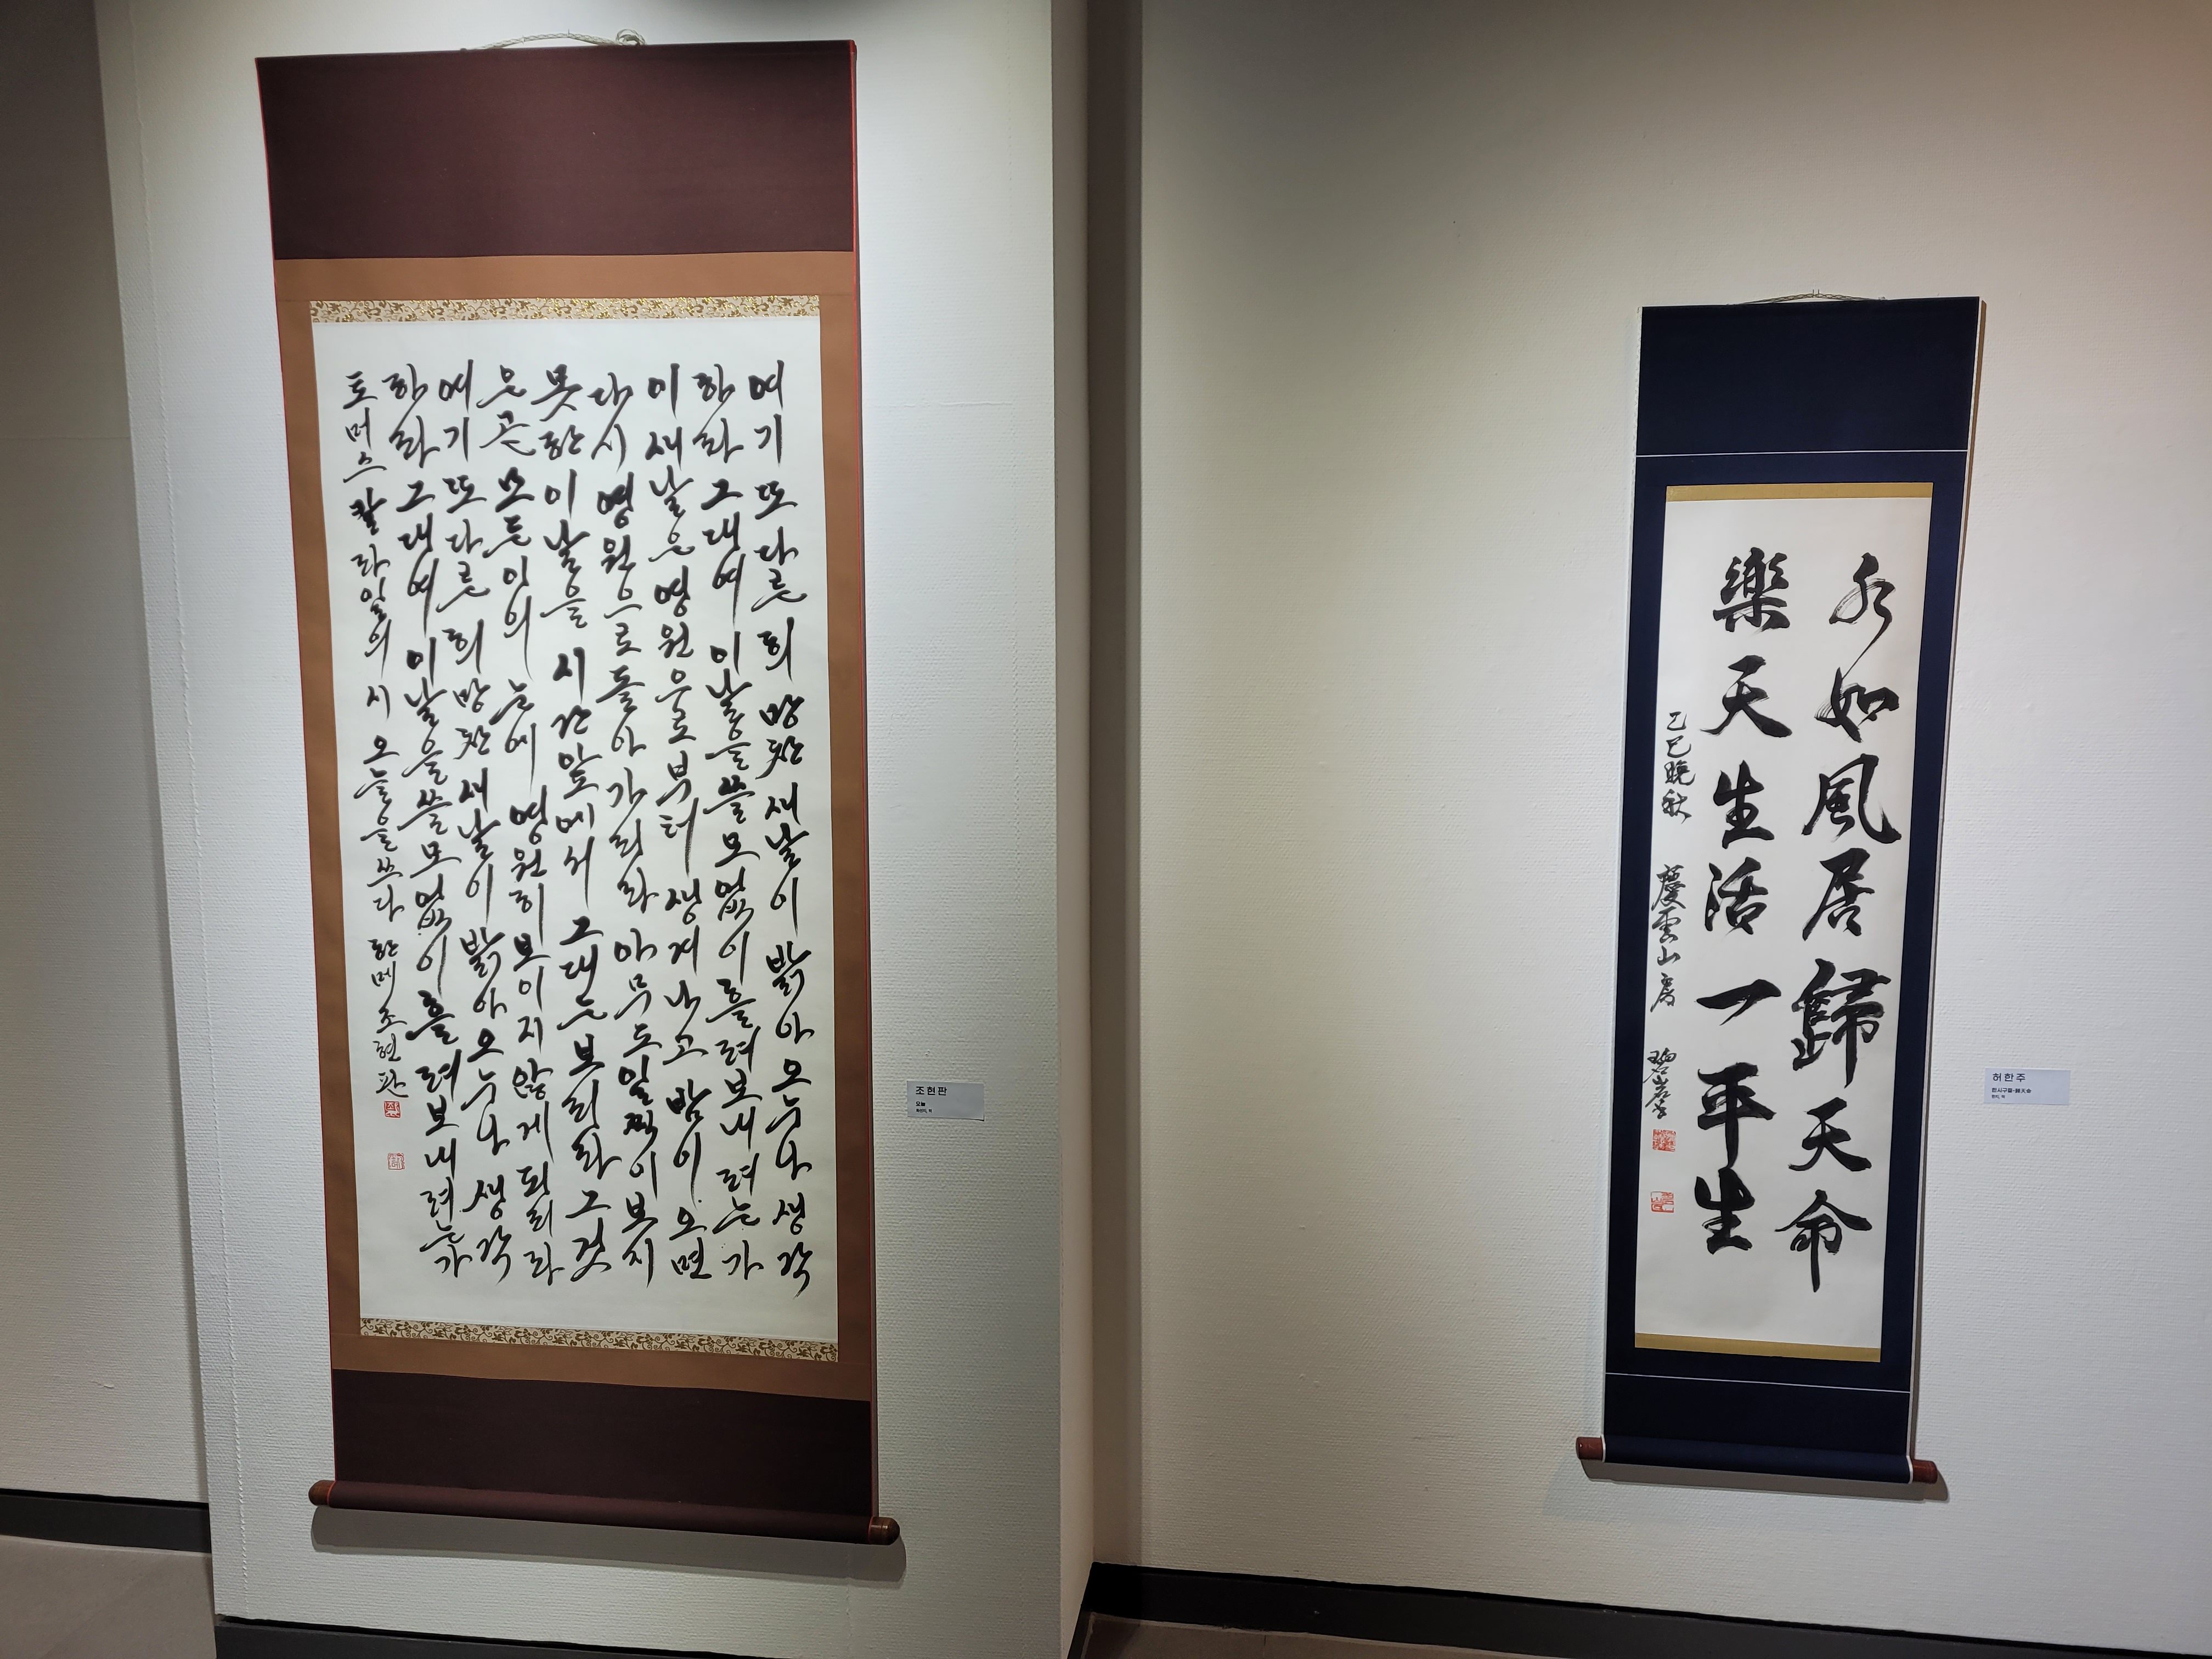 여기 또 다른 희망찬 새날이 밝아 오누나 생각
하라 그대여 이날을 쓸모 없이 흘려 보내려는가
이 새날은 영원으로부터 생겨나고 밤이 오면
다시 영원으로 돌아가리라 아무도 일찍이 보지
못한 이날을 시간 앞에서 그대는 보리라 그것
은 곧 모든 인의 눈에 영원히 보이지 않게 되리라
여기 또 다른 희망찬 새날이 밝아 오누나 생각
하라 그대여 이날을 쓸모 없이 흘려 보내려는가
토머스 칼라일의 시 오늘을 쓰다 한메 조현판
조현판
오늘
水如風居歸天命
樂天生活一平生
乙巳晩秋 慶雲山房
허한주